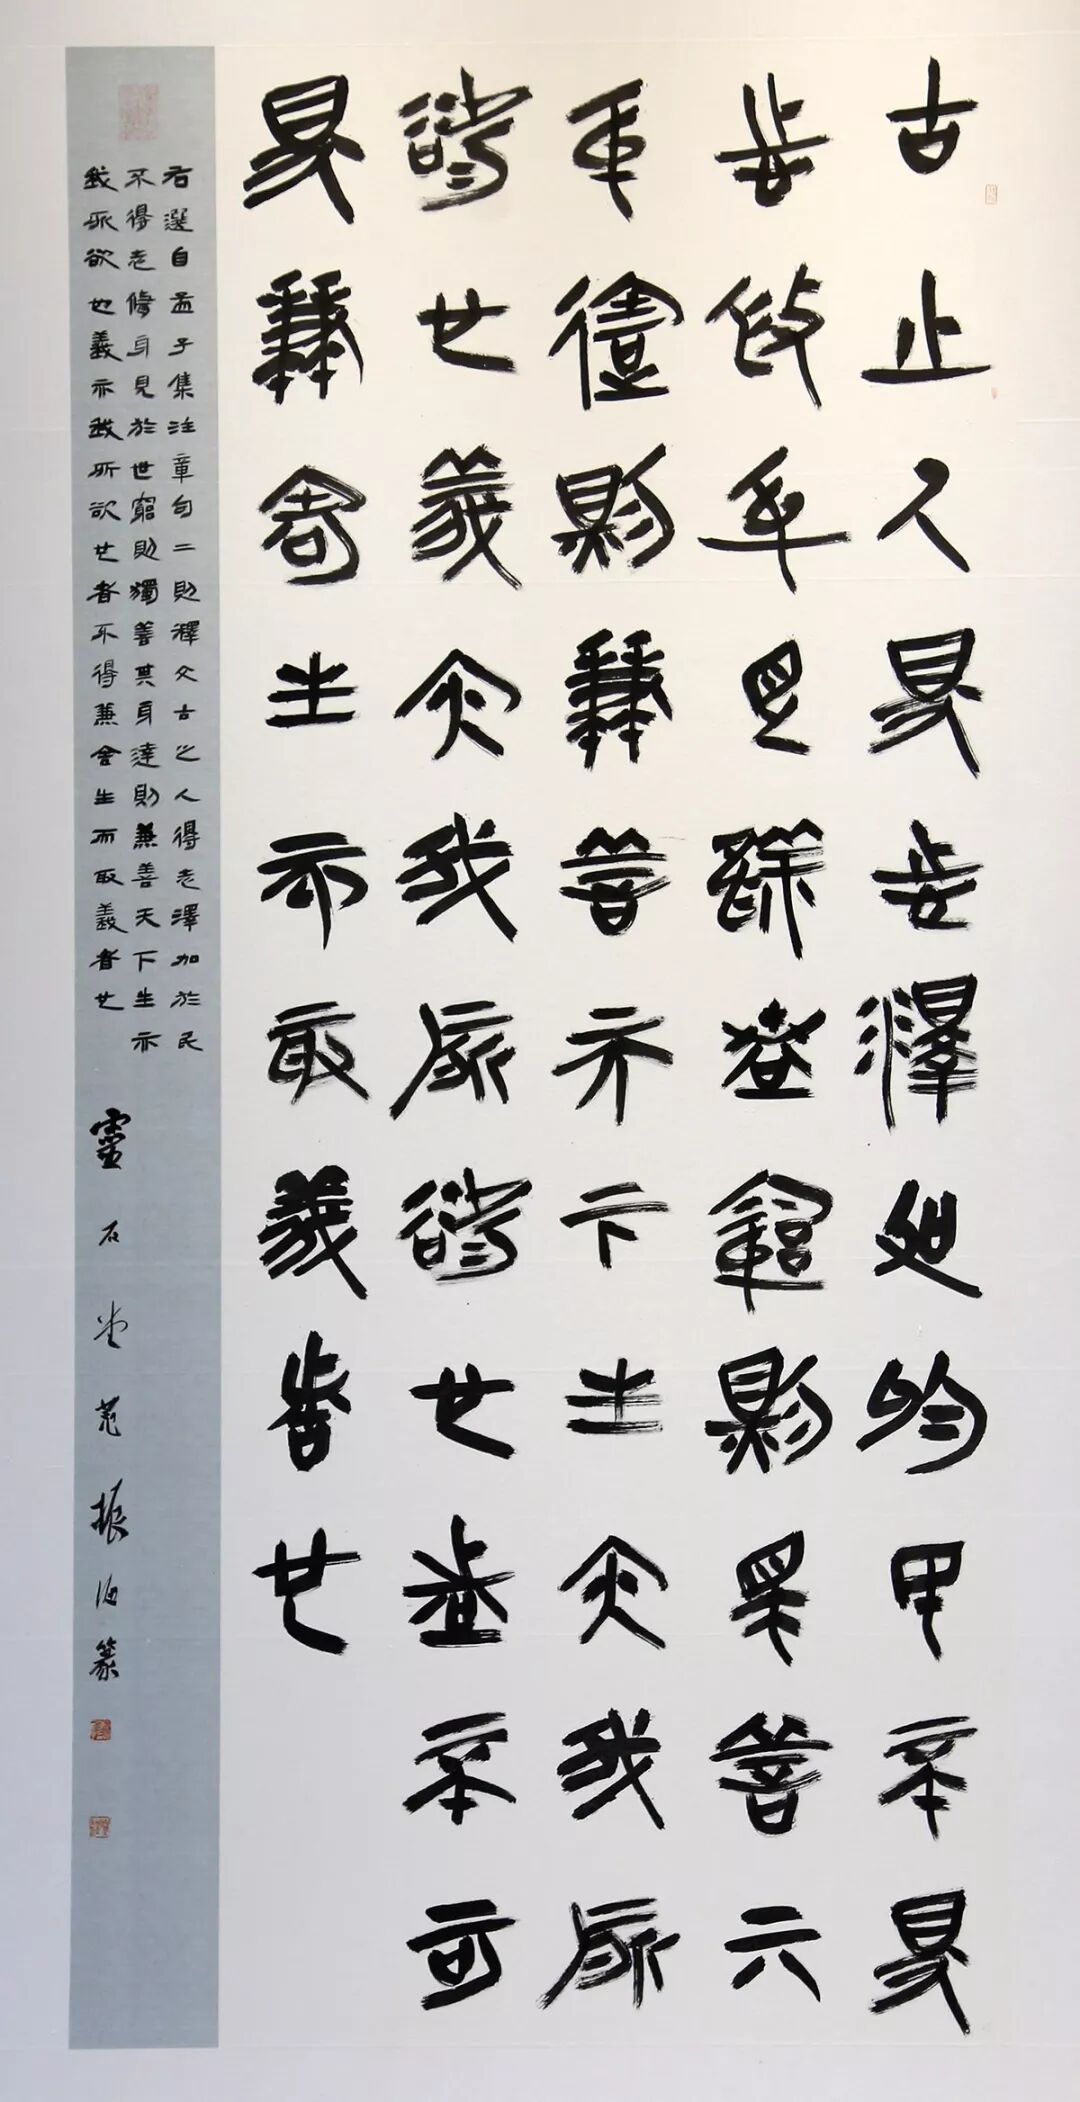 古之人得志澤加於民不得
志修身見於世窮則獨善其
身達則兼善天下生亦我所
欲也義亦我所欲也者不可
得兼舍生而取義者也
右選自孟子集注章句二則釋文古之人得志澤加於民
不得志脩身見於世窮則獨善其身達則兼善天下生亦
我所欲也義亦我所欲也者不得兼舍生而取義者也
靈石堂范振海篆